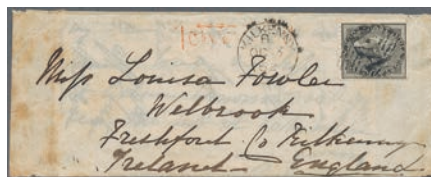 Miss Louisa Fowler
Welbrook
Freshford Co Kilkenny
Ireland England